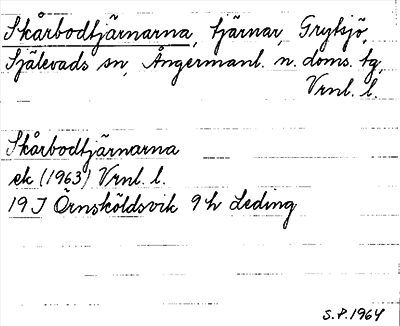 Skårbodtjärnarna, tjärnar, Grytsjö,
Själevads sn, Ångermanl. n. doms. tg,
Vrnl. l.
Skårbodtjärnarna
ek (1963) Vrnl. l.
19 J Örnsköldsvik 9 h Leding
S.P. 1964